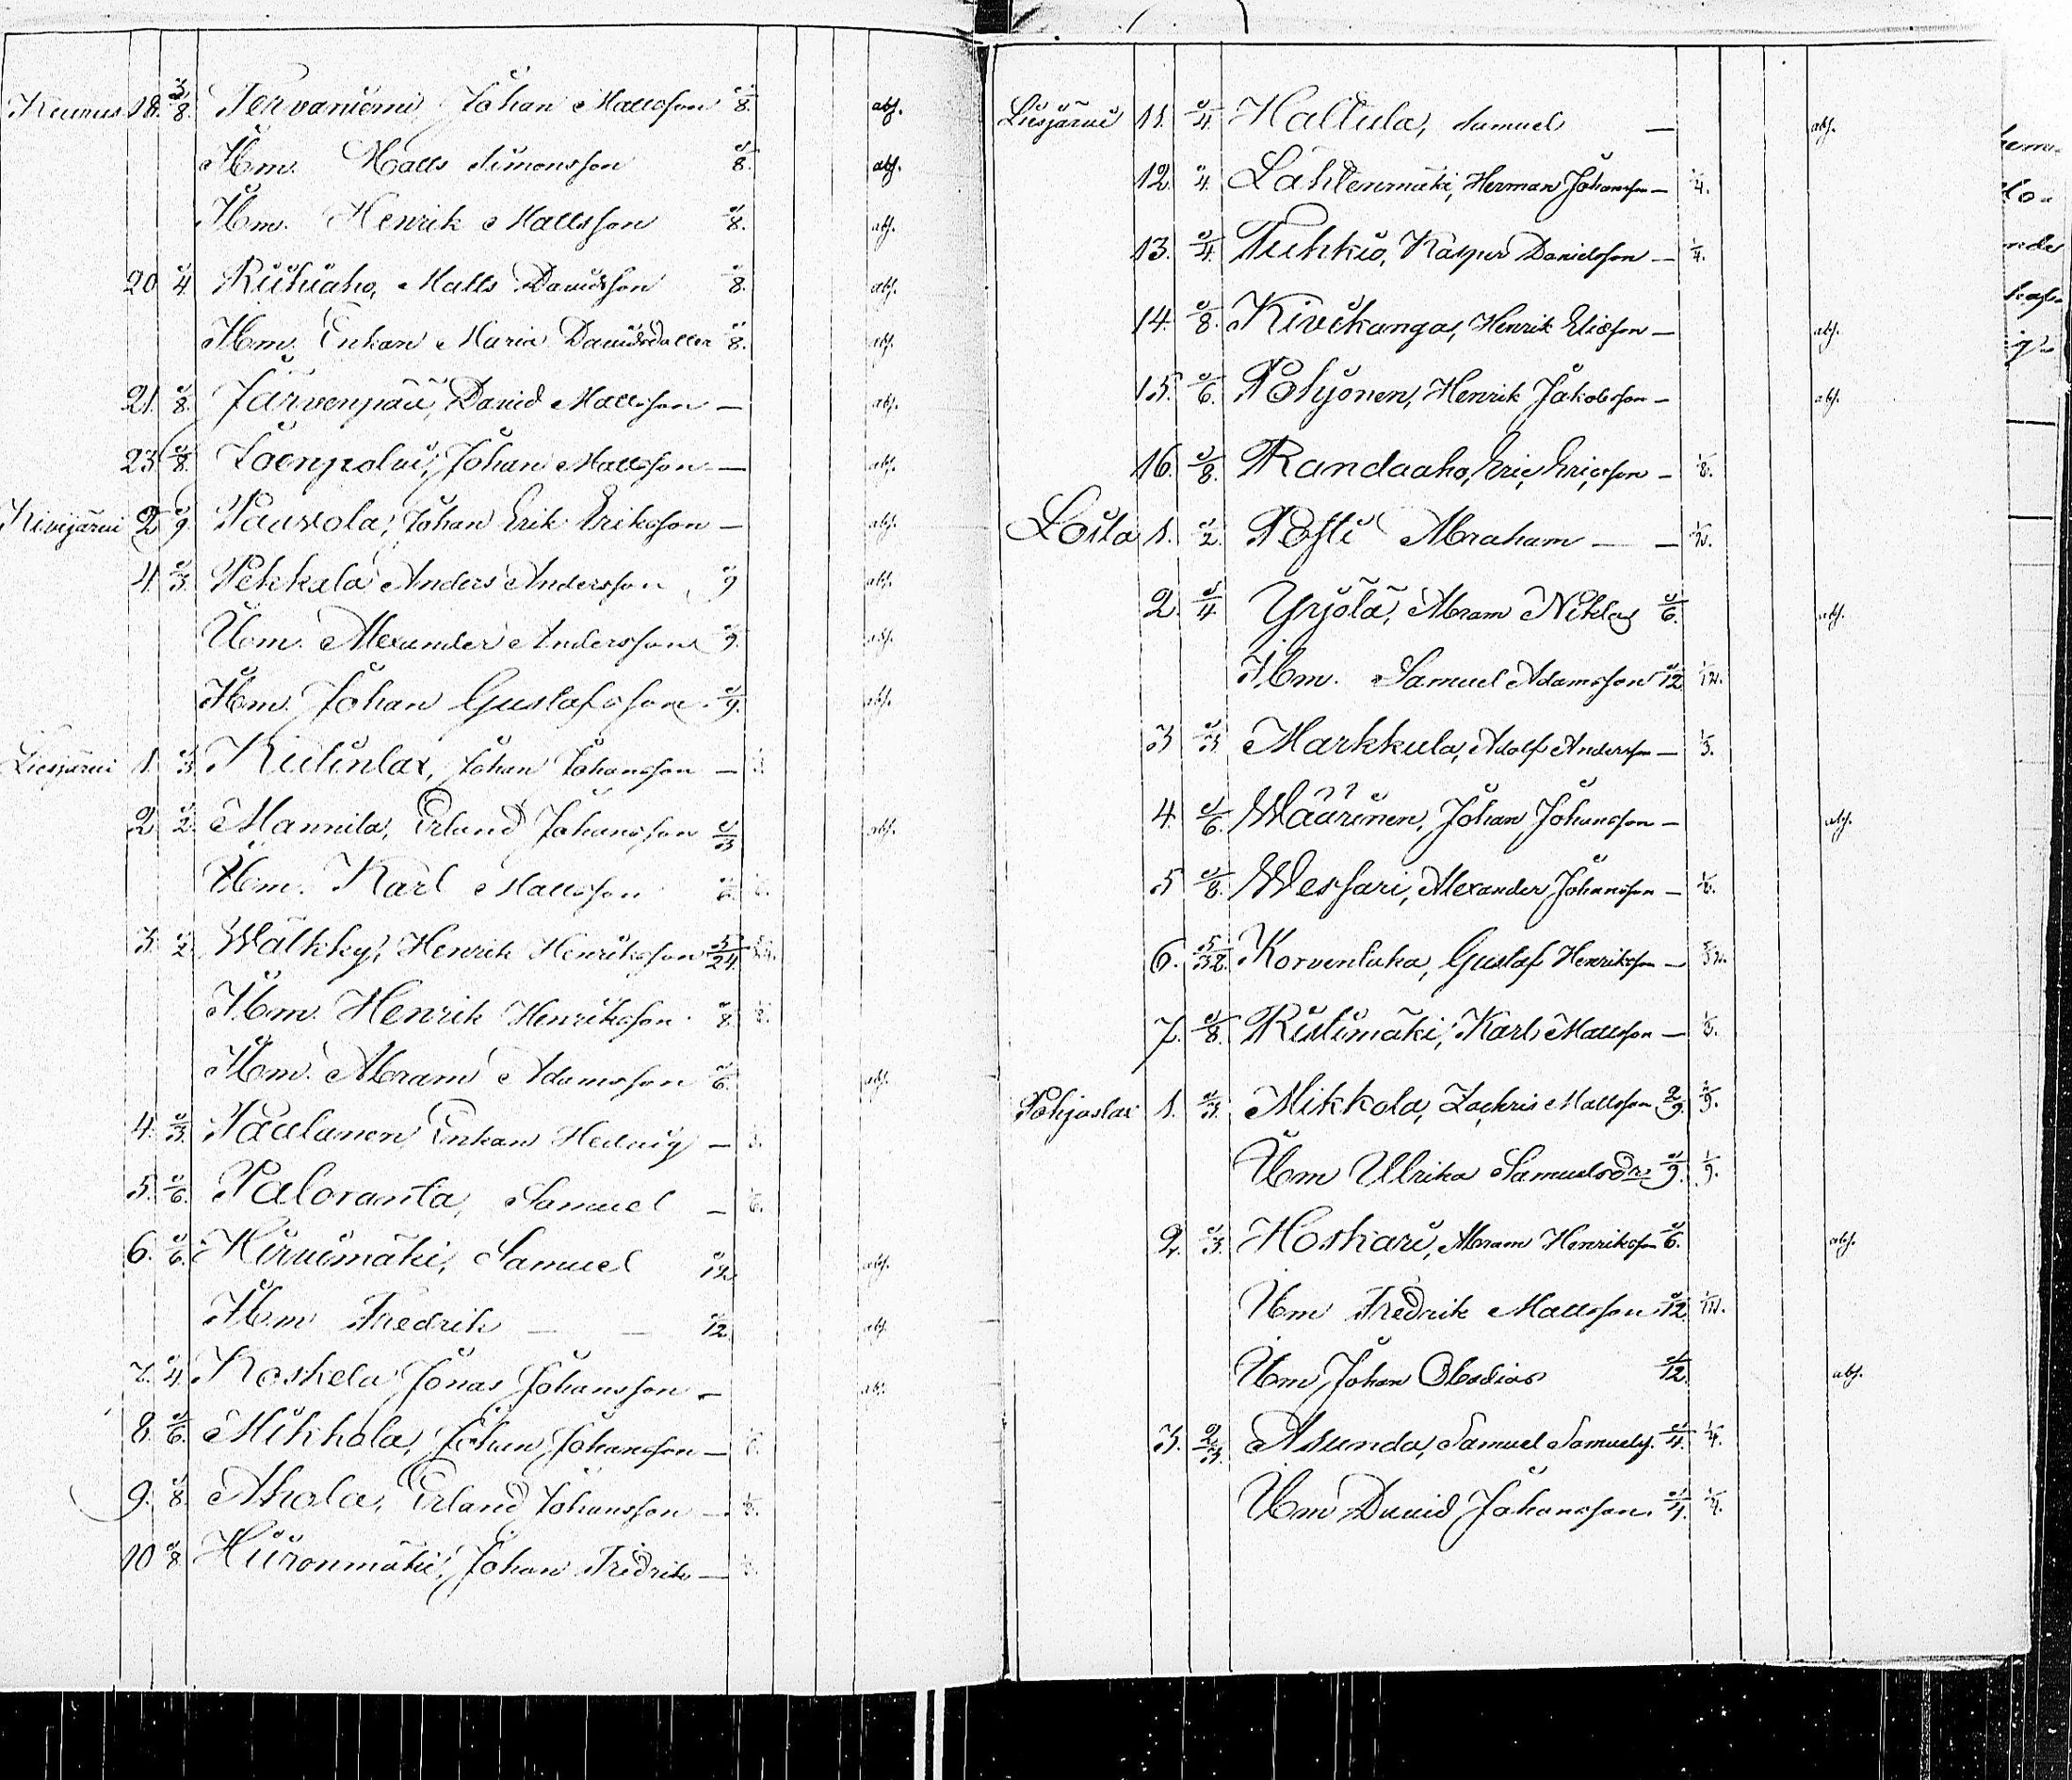 Keurus 18. 3/8 Tervaniemi, Johan Mattsson 1/8. abs.
Ibm. Matts Simonsson 1/8. abs.
Ibm. Henrik Mattsson 1/8. abs.
20 1/4. Riihiaho, Matts Davidsson 1/8. abs.
Ibm. Enkan Maria Davidsdotter 1/8. abs.
21. 1/8. Järvenpää, David Mattsson — abs.
23 1/8. Johan Mattsson — abs.
Kivijärvi 2 1/9. Pauvola, Johan Erik Eriksson — abs.
4. 1/3. Pekkala Anders Andersson 1/9 abs.
Ibm. Alexander Andersson 1/9. abs.
Ibm. Johan Gustafsson 1/9. abs.
Liesjärvi 1. 1/3 Kiilinlax, Johan Johansson — 1/3.
2 1/2. Mannila, Erland Johansson 1/3 abs.
Ibm. Karl Mattsson 1/6. 1/6.
3. 1/2. Wälkky, Henrik Henriksson 5/24. 5/24.
Ibm. Henrik Henriksson 1/8. 1/8.
Ibm. Abram Adamsson 1/6. abs.
4. 1/3. Paulanen, Enkan Hedvig — 1/3.
5. 1/6. Paloranta, Samuel — 1/6.
6. 1/6. Hirvimäki, Samuel 1/12 abs.
Ibm Fredrik — — 1/12. abs.
7. 1/4. Koskela Jonas Johansson — abs.
8. 1/6. Mikkola, Johan Johansson — 1/6.
9. 1/8. Ahola, Erland Johansson — 1/8.
10 1/8. Hiironmäki, Johan Fredrik — 1/8.
Liesjärvi 11. 1/4. Hallula, Samuel — abs.
12. 1/4. Lahdenmäki, Herman Johansson — 1/4.
13. 1/4. Tuhkio, Kasper Danielsson — 1/4.
14. 1/8. Kivikangas, Henrik Eliasson — abs.
15. 1/6. Pohjonen, Henrik Jakobsson — abs.
16. 1/8. Randaaho, Eric Ericsson — 1/8.
Loila 1. 1/2. Posti Abraham — — 1/2.
2. 1/4 Yrjölä, Abram Niklas 1/6. abs.
Ibm. Samuel Adamsson 1/12 1/12.
3 1/3 Markkula, Adolf Andersson — 1/3.
4. 1/6. Määrinen, Johan Johansson — abs.
5 1/8. Wessari, Alexander Johansson — 1/8.
6. 5/32. Korvenluha, Gustaf Henriksson — 5/32.
7. 1/8. Ristimäki, Karl Mattsson — 1/8.
Pohjoslax 1. 1/3. Mikkola, Zachris Mattsson 2/9. 2/9.
Ibm Ulrika Samuelsdr 1/9. 1/9.
2. 1/3. Hoskari, Abram Henriksson 1/6. abs.
Ibm Fredrik Mattsson 1/12. 1/12.
Ibm Johan Obadias 1/12. abs.
3. 2/3. Asunda, Samuel Samuels. 1/4. 1/4.
Ibm David Johansson. 1/4. 1/4.